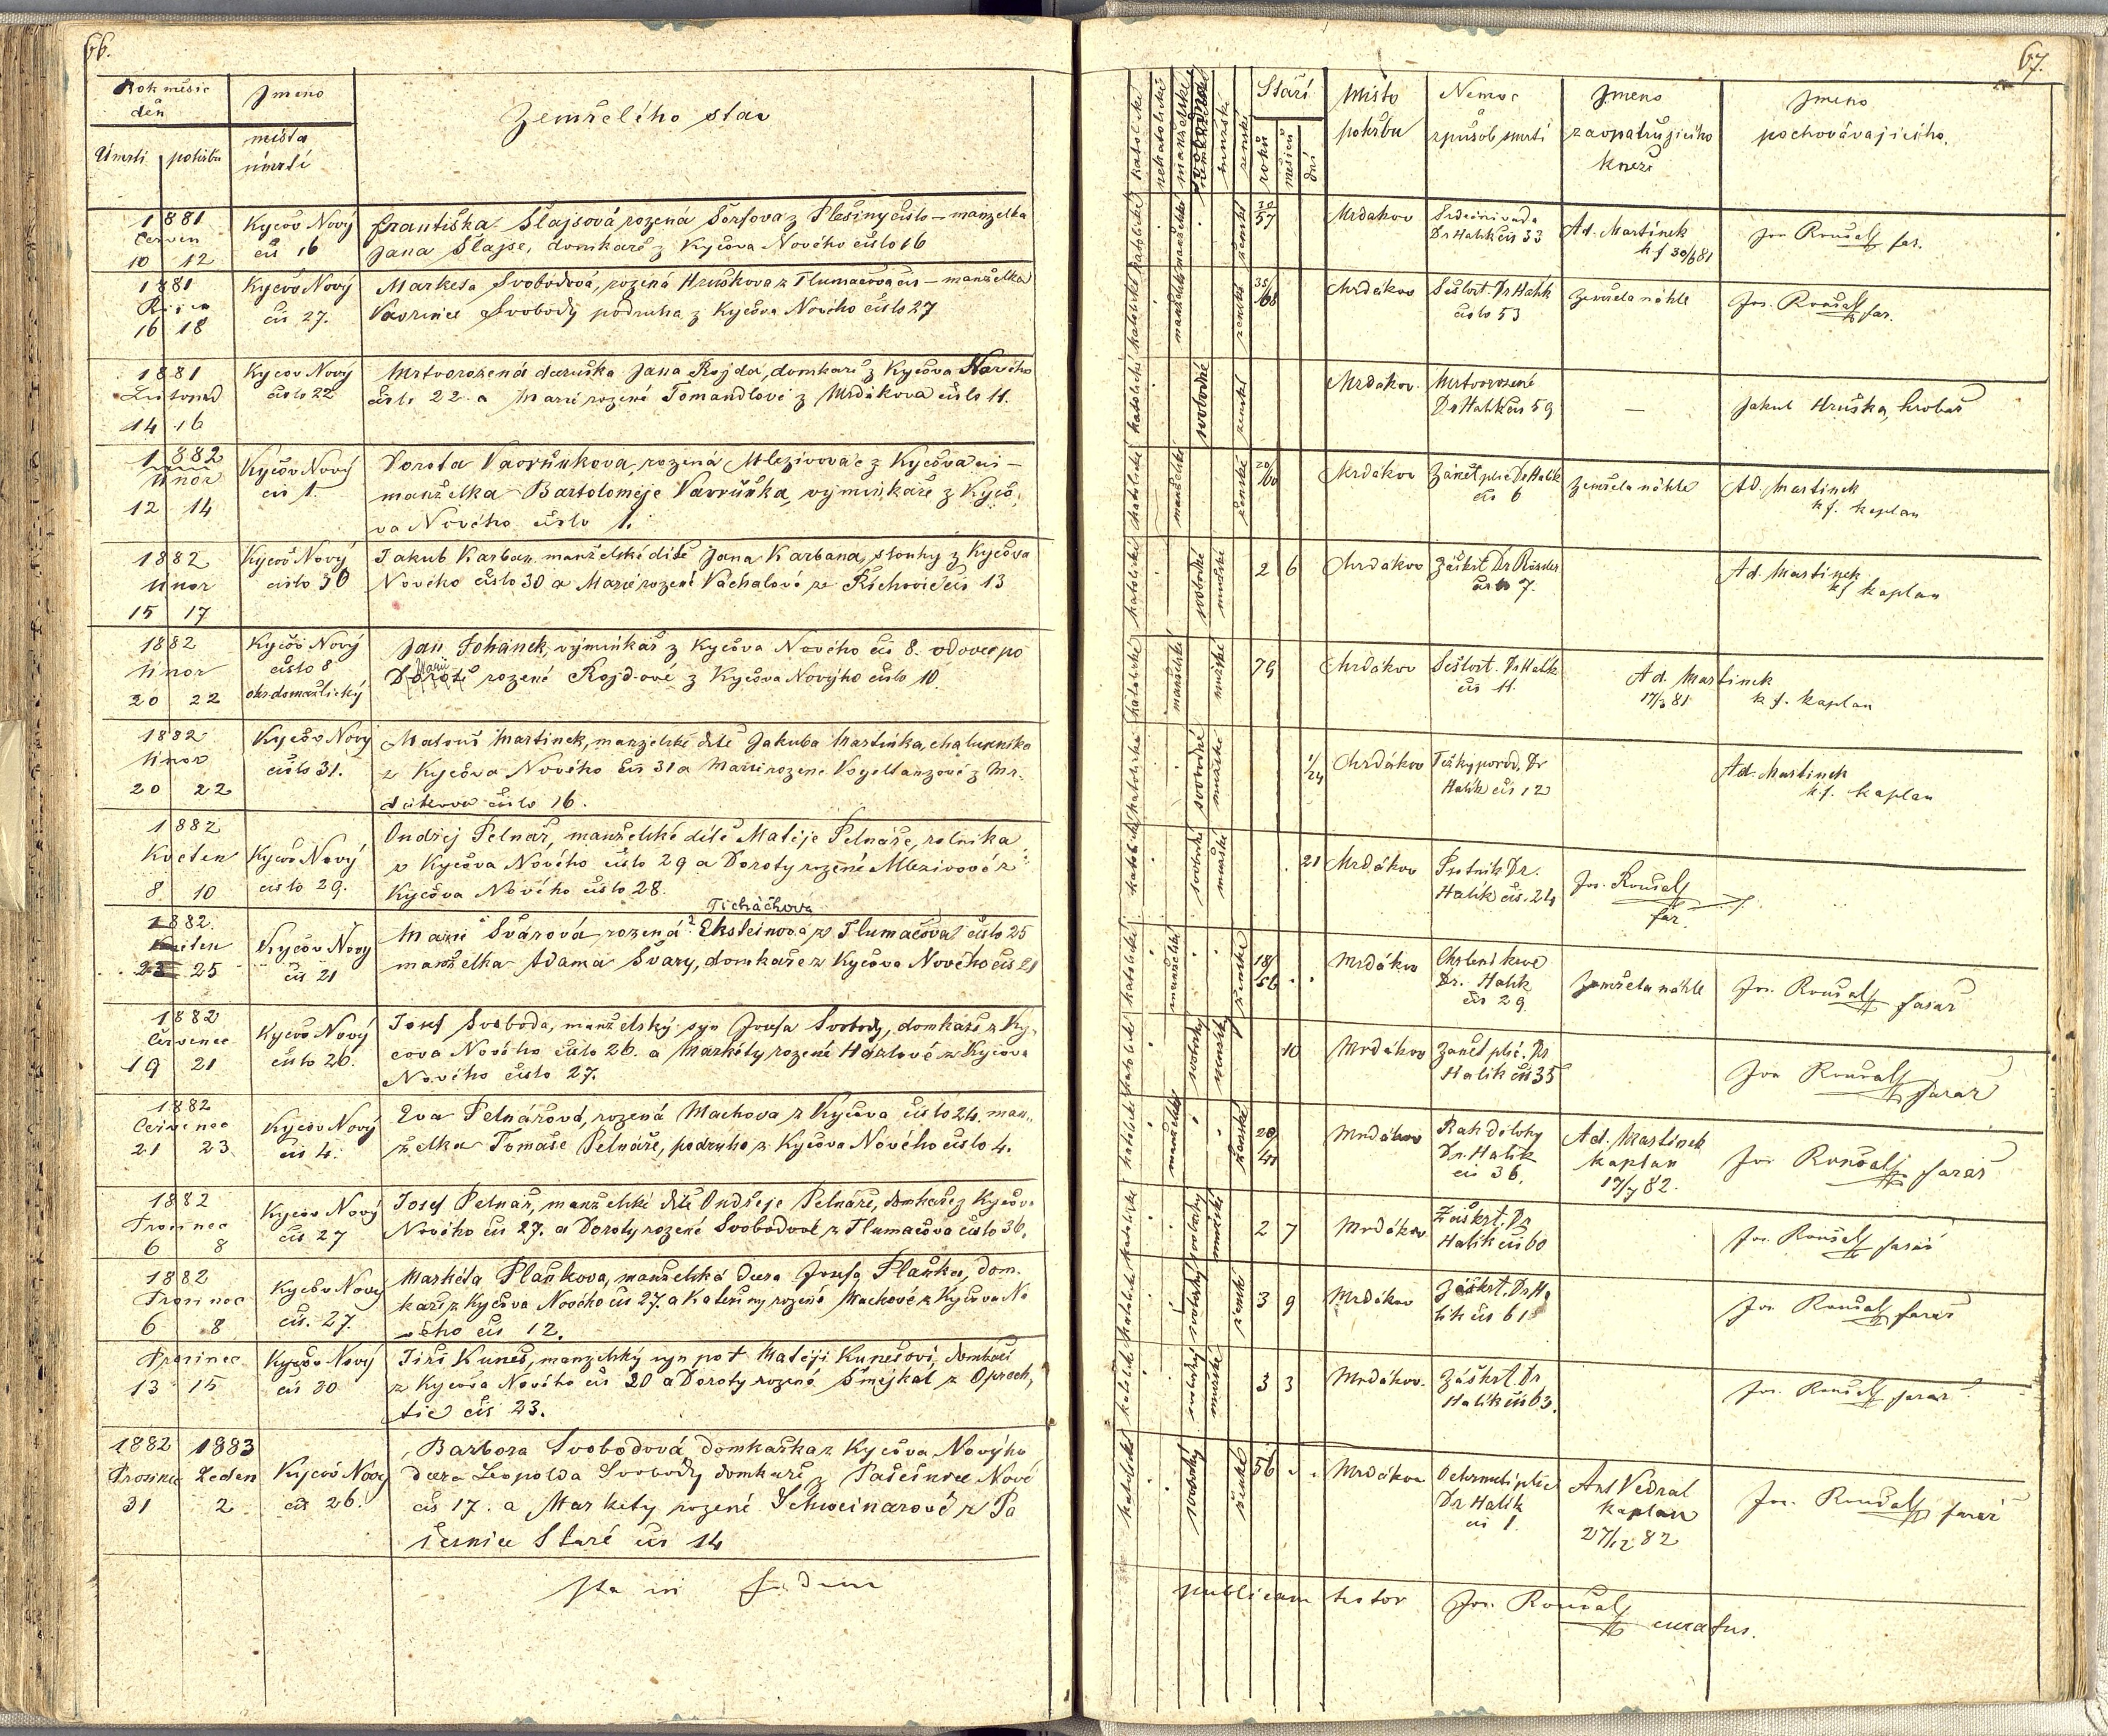 66.
Rok měsíc
den
Jmeno
Zemřelého stav
Úmrtí pohřbu
místa
úmrtí
1881
Červen
10 12
Kyčov Nový
čís 16
Františka Šlajsová rozená Šorfova z Plešiny číslo — manželka
Jana Šlajse, domkaře z Kyčova Nového číslo 16
1881
Říjen
16 18
Kyčov Nový
čís 27.
Marketa Svobodová, rozená Hruškova z Tlumačova čís — manželka
Vavřince Svobody podruha z Kyčova Nového číslo 27
1881
Listopad
14 16
Kyčov Nový
číslo 22
Mrtvorozená dceruška Jana Rojda, domkaře z Kyčova Nového
číslo 22. a Marie rozené Tomandlové z Mrdákova číslo 11.
1882
Únor
12 14
Kyčov Nový
čís 1.
Dorota Vavruňkova, rozená Mlezivova z Kyčova čís —
manželka Bartoloměje Vavruňka, vyminkaře z Kyčo-
va Nového číslo 1.
1882
Únor
15 17
Kyčov Nový
číslo 30
Jakub Karban, manželské dítě Jana Karbana, slouhy z Kyčova
Nového číslo 30 a Marie rozené Vachalové ze čís 13
1882
Únor
20 22
Kyčov Nový
číslo 8
okr. domažlický
Jan Johánek, výminkář z Kyčova Nového čís 8. vdovec po
Marii
Dorotě rozené Rojd-ové z Kyčova Nového číslo 10.
1882
Únor
20 22
Kyčov Nový
číslo 31.
Matouš Martinek, manželské dítě Jakuba Martinka, chalupníka
z Kyčova Nového čís 31 a Marie rozené Vogeltanzové z Mr-
dákova číslo 16.
1882
Květen
8 10
Kyčov Nový
číslo 29.
Ondřej Pelnář, manželské dítě Matěje Pelnáře, rolníka
z Kyčova Nového číslo 29 a Doroty rozené Mlezivové z
Kyčova Nového číslo 28.
1882.
Květen
23 25
Kyčov Nový
čís 21
Ticháčkova
Marie Švárová, rozená Eksteinova z Tlumačova číslo 25
manželka Adama Švary, domkaře z Kyčova Nového čís 21
1882
Červenec
19 21
Kyčov Nový
číslo 26.
Josef Svoboda, manželský syn Josefa Svobody, domkaře z Ky-
čova Nového číslo 26. a Markéty rozené z Kyčova
Nového číslo 27.
1882
Červenec
21 23
Kyčov Nový
čís 4.
Eva Pelnářová, rozená Machova z Kyčova číslo 24. man-
želka Tomáše Pelnáře, podruha z Kyčova Nového číslo 4.
1882
Prosinec
6 8
Kyčov Nový
čís 27
Josef Pelnář, manželské dítě Ondřeje Pelnáře, domkaře z Kyčova
Nového čís 27. a Doroty rozené Svobodové z Tlumačova číslo 36.
1882
Prosinec
6 8
Kyčov Nový
čís. 27.
Markéta Plaňkova, manželská dcera Josefa Plaňka, dom-
kaře z Kyčova Nového čís 27. a Kateřiny rozené Machové z Kyčova No
vého čís 12.
Prosinec
13 15
Kyčov Nový
čís 30
Jiří Kuneš, manželský syn po † Matěji Kunešovi, domkaři
z Kyčova Nového čís 20 a Doroty rozené Šmejkal z Oprech-
tic čís 23.
1882 1883
Prosinec Leden
31 2
Kyčov Nový
čís 26.
Barbora Svobodová domkařka z Kyčova Nového
dcera Leopolda Svobody domkaře z Pasečnice Nové
čís 17. a Markéty rozené Schweinarové z Pa
sečnice Staré čís 14
Ita in fidem
67.
katolické
nekatolické
manželské
svobodné
mužské
ženské
Stáří
roků
měsíců
dní
Místo
pohřbu
Nemoc
způsob smrti
Jmeno
zaopatřujícího
kněze
Jmeno
pochovávajícího.
57
Mrdákov
Srdeční vada
Dr Halík čís 33
Ad. Martínek
Jos. Roušal far.
68
Mrdákov
Sešlost. Dr Halík
číslo 53
Zemřela náhle
Jos. Roušal far.
Mrdákov.
Mrtvorozené
Dr Halík čís 59
—
Jakub Hruška, hrobař
20/60
Mrdákov
Zánět plic Dr Halík
čís 6
Zemřela náhle
Ad. Martínek
kf. kaplan
2 6
Mrdákov
Záškrt Dr
číslo 7.
Ad. Martínek
kf kaplan
79
Mrdákov
Sešlost. Dr Halík
čís 11.
Ad. Martínek
kf. kaplan
1/24
Mrdákov
Těžký porod, Dr
Halík čís 12
Ad. Martínek
kf. kaplan
21
Mrdákov
Psotník Dr.
Halík čís. 24
Jos. Roušal
far
18/56
Mrdákov
Chrlení krve
Dr. Halík
čís 29
Zemřela náhle
Jos. Roušal farář
10
Mrdákov
Zánět plic. Dr
Halík čís 35
Jos Roušal
farář
20/41
Mrdákov
Rak dělohy
Dr. Halík
čís 36.
Ad. Martínek
kaplan
17/7 82.
Jos Roušal farář
2 7
Mrdákov
Záškrt. Dr
Halík čís 60
Jos. Roušal farář
3 9
Mrdákov
Záškrt. Dr Ha
lík čís 61
Jos. Roušal farář
3 3
Mrdákov.
Záškrt. Dr
Halík čís 63.
Jos. Roušal farář
56
Mrdákov
Ochrnutí plic
Dr Halík
čís 1.
Ant Vedral
kaplan
27/12 82
Jos. Roušal farář
publicam testor Jos. Roušal
curatus.